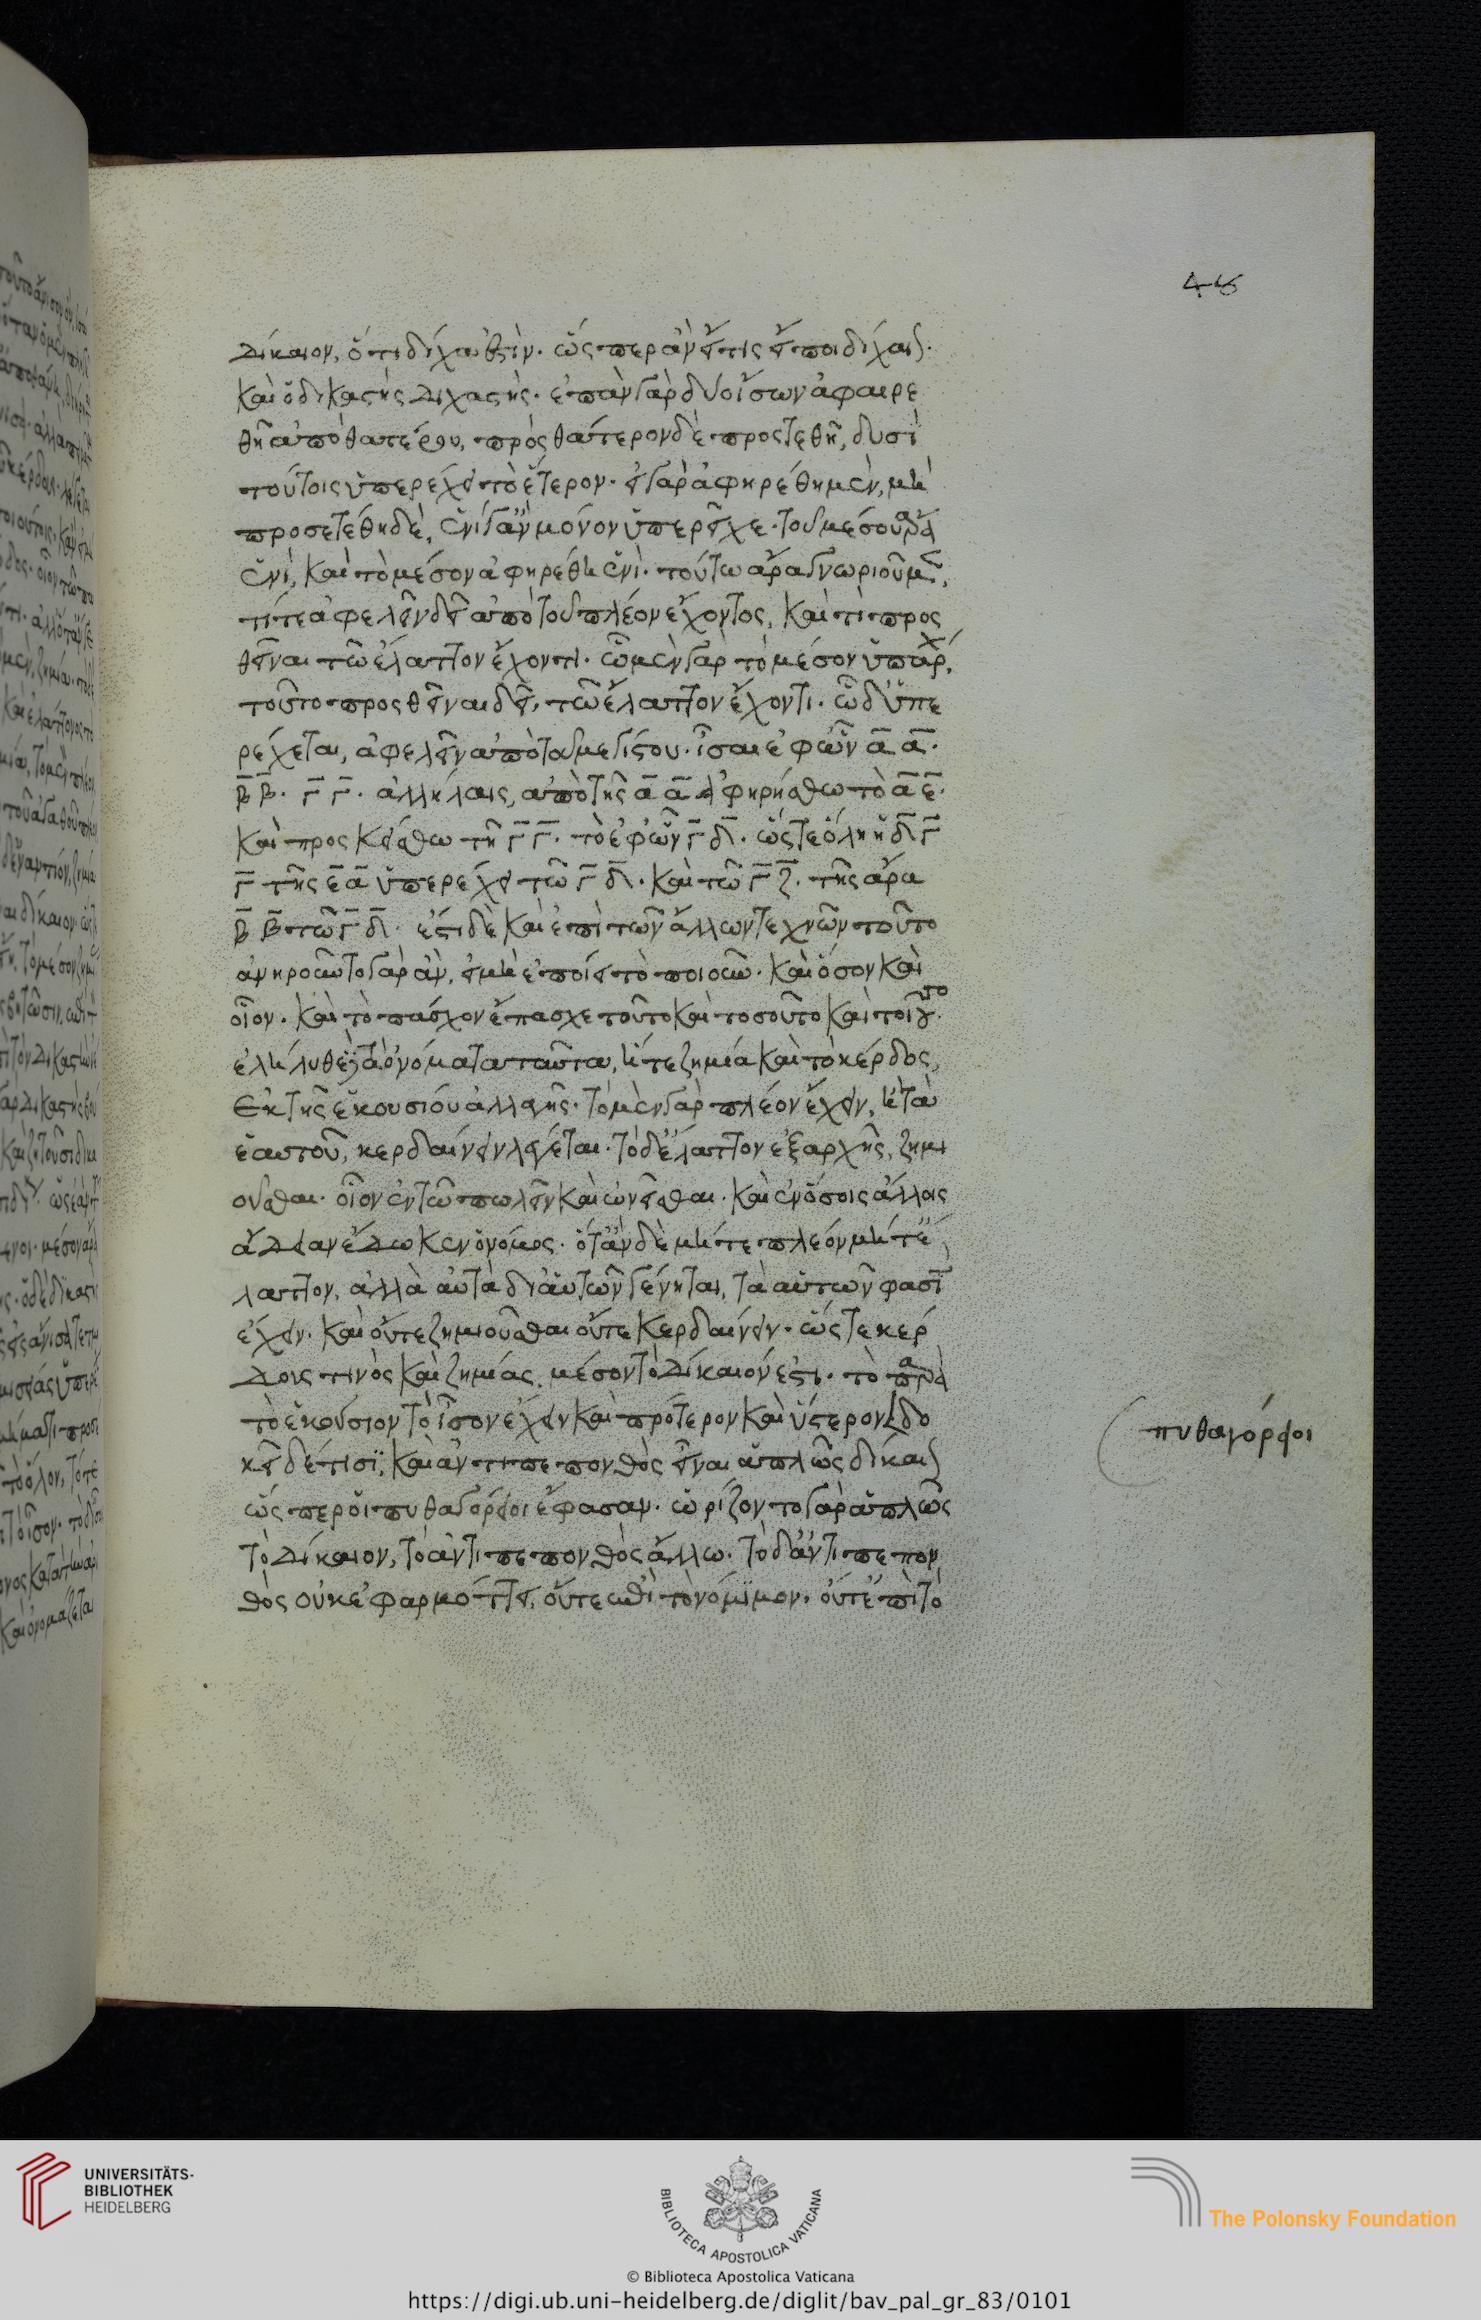 46
δίκαιον, ὅτι δίχα ἐστὶν. ὥσπερ ἂν εἴ τις εἴποι δίχαιον.
καὶ ὁ δικαστὴς διχαστής. ἐπὰν γὰρ δύο ἴσων ἀφαιρε
θῆ ἀπὸ θατέρου, πρὸς θάτερον δὲ προστεθῆ, δυσὶ
τούτοις ὑπερέχει τὸ ἕτερον. εἰ γὰρ ἀφηρέθη μὲν, μὴ
προσετέθη δὲ, ἑνὶ γ' ἂν μόνον ὑπερεῖχε. τοῦ μέσου ἄρα
ἑνὶ, καὶ τὸ μέσον ἀφηρέθη ἑνὶ. τούτω ἄρα γνωριοῦμεν,
τί τε ἀφελεῖν δεῖ ἀπὸ τοῦ πλέον ἔχοντος, καὶ τί προσ
θεῖναι τῶ ἔλαττον ἔχοντι. ὧ μὲν γὰρ τὸ μέσον ὑπάρχει,
τοῦτο προσθεῖναι δεῖ, τῶ ἔλαττον ἔχοντι. ὧ δ' ὑπε
ρέχεται, ἀφελεῖν ἀπὸ τοῦ μεγίστου. ἴσαι ἐφ' ὧν α α.
β β. γ γ. ἀλλήλαις, ἀπὸ τῆς α α ἀφηρήσθω τὸ α ε.
καὶ προσκείσθω τῆ γ γ. τὸ ἐφ' ὧν γ δ. ὥστε ὅλη ἡ δ γ
γ τῆς ε α ὑπερέχει τῶ γ δ. καὶ τῶ γ ζ. τῆς ἄρα
β β τῶ γ δ. ἔστι δὲ καὶ ἐπὶ τῶν ἄλλων τεχνῶν τοῦτο
ἀνηροῦντο γὰρ ἂν, εἰ μὴ ἐποίει τὸ ποιοῦν. καὶ ὅσον καὶ
οἷον. καὶ τὸ πάσχον ἔπασχε τοῦτο καὶ τοσοῦτο καὶ τοιοῦτο.
ἐλήλυθε δὲ τὰ ὀνόματα ταῦτα, ἥ τε ζημία καὶ τὸ κέρδος,
ἐκ τῆς ἑκουσίου ἀλλαγῆς. τὸ μὲν γὰρ πλέον ἔχειν, ἢ τὰ
ἑαυτοῦ, κερδαίνειν λέγεται. τὸ δ' ἔλαττον ἐξ ἀρχῆς, ζημι
οῦσθαι. οἷον ἐν τῶ πωλεῖν καὶ ὠνεῖσθαι. καὶ ἐν ὅσοις ἄλλοις
ἄδειαν ἔδωκεν ὁ νόμος. ὅταν δὲ μήτε πλέον μήτε ἔ
λαττον, ἀλλὰ αὐτὰ δι' αὑτῶν γένηται, τὰ αὑτῶν φασὶν
ἔχειν. καὶ οὔτε ζημιοῦσθαι οὔτε κερδαίνειν. ὥστε κέρ
δους τινὸς καὶ ζημίας, μέσον τὸ δίκαιόν ἐστι. τὸ παρὰ
τὸ ἑκούσιον τὸ ἴσον ἔχειν καὶ πρότερον καὶ ὕστερον δο
κεῖ δέ τισι, καὶ ἀντιπεπονθὸς εἶναι ἁπλῶς δίκαιον
ὥσπερ οἱ πυθαγόρειοι ἔφασαν. ὡρίζοντο γὰρ ἁπλῶς
τὸ δίκαιον, τὸ ἀντιπεπονθὸς ἄλλω. τὸ δ' ἀντιπεπον
θὸς οὐκ ἐφαρμόττει, οὔτε ἐπὶ τὸ νόμιμον. οὔτ' ἐπὶ τὸ
πυθαγόρειοι
UNIVERSITÄTS-
BIBLIOTHEK
HEIDELBERG
BIBLIOTECA APOSTOLICA VATICANA
The Polonsky Foundation
© Biblioteca Apostolica Vaticana
https://digi.ub.uni-heidelberg.de/diglit/bav_pal_gr_83/0101